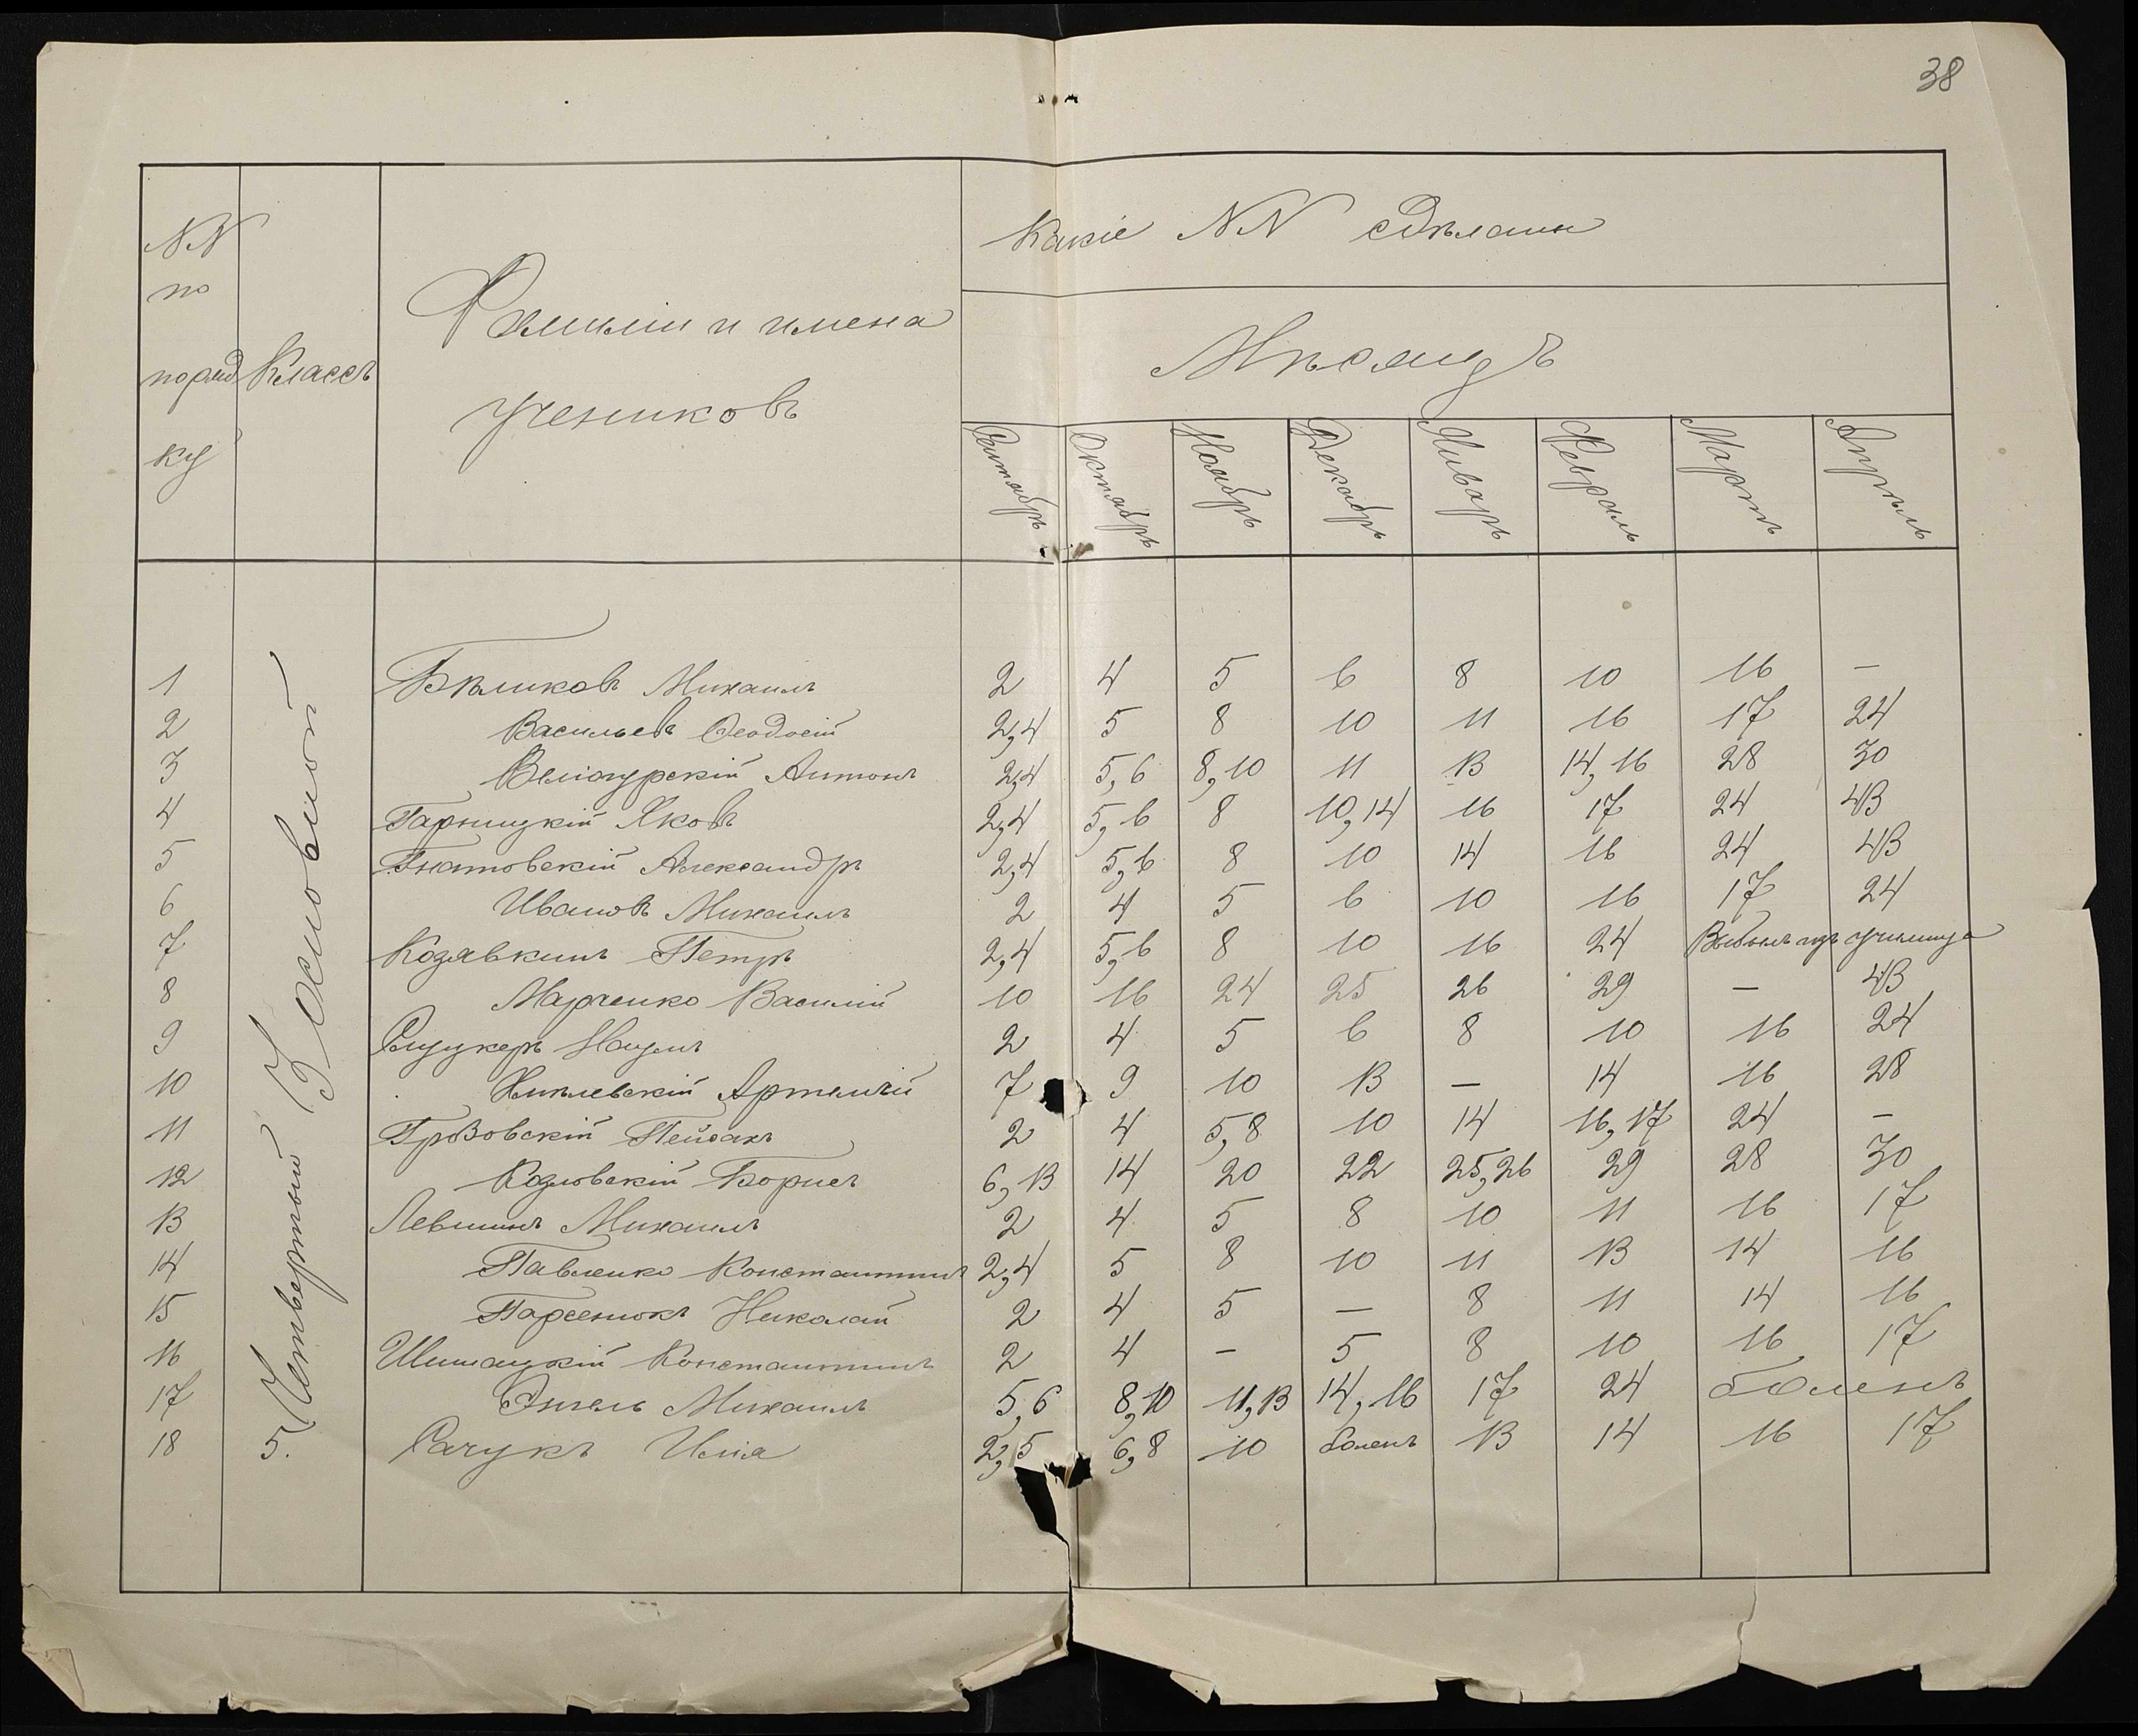 38
NN по порядку
Классъ
Фамиліи и имена учениковъ
Какіе NN сдѣланы
Мѣсяцъ
Сентябрь Октябрь Ноябрь Декабрь Январь Февраль Мартъ Апрѣль
Основной
Четвертый
1 Бѣликовъ Михаилъ 2 4 5 6 8 10 16 —
2 Васильевъ Ѳеодосій 2,4 5 8 10 11 16 17 24
3 Антонъ 2,4 5,6 8,10 11 13 14,16 28 30
4 Гарницкій Яковъ 2,4 5,6 8 10,14 16 17 24 43
5 Гнатовскій Александръ 2,4 5,6 8 10 14 16 24 43
6 Ивановъ Михаилъ 2 4 5 6 10 16 17 24
7 Козявкинъ Петръ 2,4 5,6 8 10 16 24 Выбылъ изъ училища
8 Марченко Василій 10 16 24 25 26 29 — 43
9 Слуцкеръ Наумъ 2 4 5 6 8 10 16 24
10 Артемій 7 9 10 13 — 14 16 28
11 Грозовскій Пейсахъ 2 4 5,8 10 14 16,17 24 —
12 Козловскій Борисъ 6,13 14 20 22 25,26 29 28 30
13 Левшинъ Михаилъ 2 4 5 8 10 11 16 17
14 Павленко Константинъ 2,4 5 8 10 11 13 14 16
15 Парсенюкъ Николай 2 4 5 — 8 11 14 16
16 Шишацкій Константинъ 2 4 — 5 8 10 16 17
17 Энгель Михаилъ 5,6 8,10 11,13 14,16 17 24 боленъ
18 5. Сачукъ Илія 2,5 6,8 10 боленъ 13 14 16 17